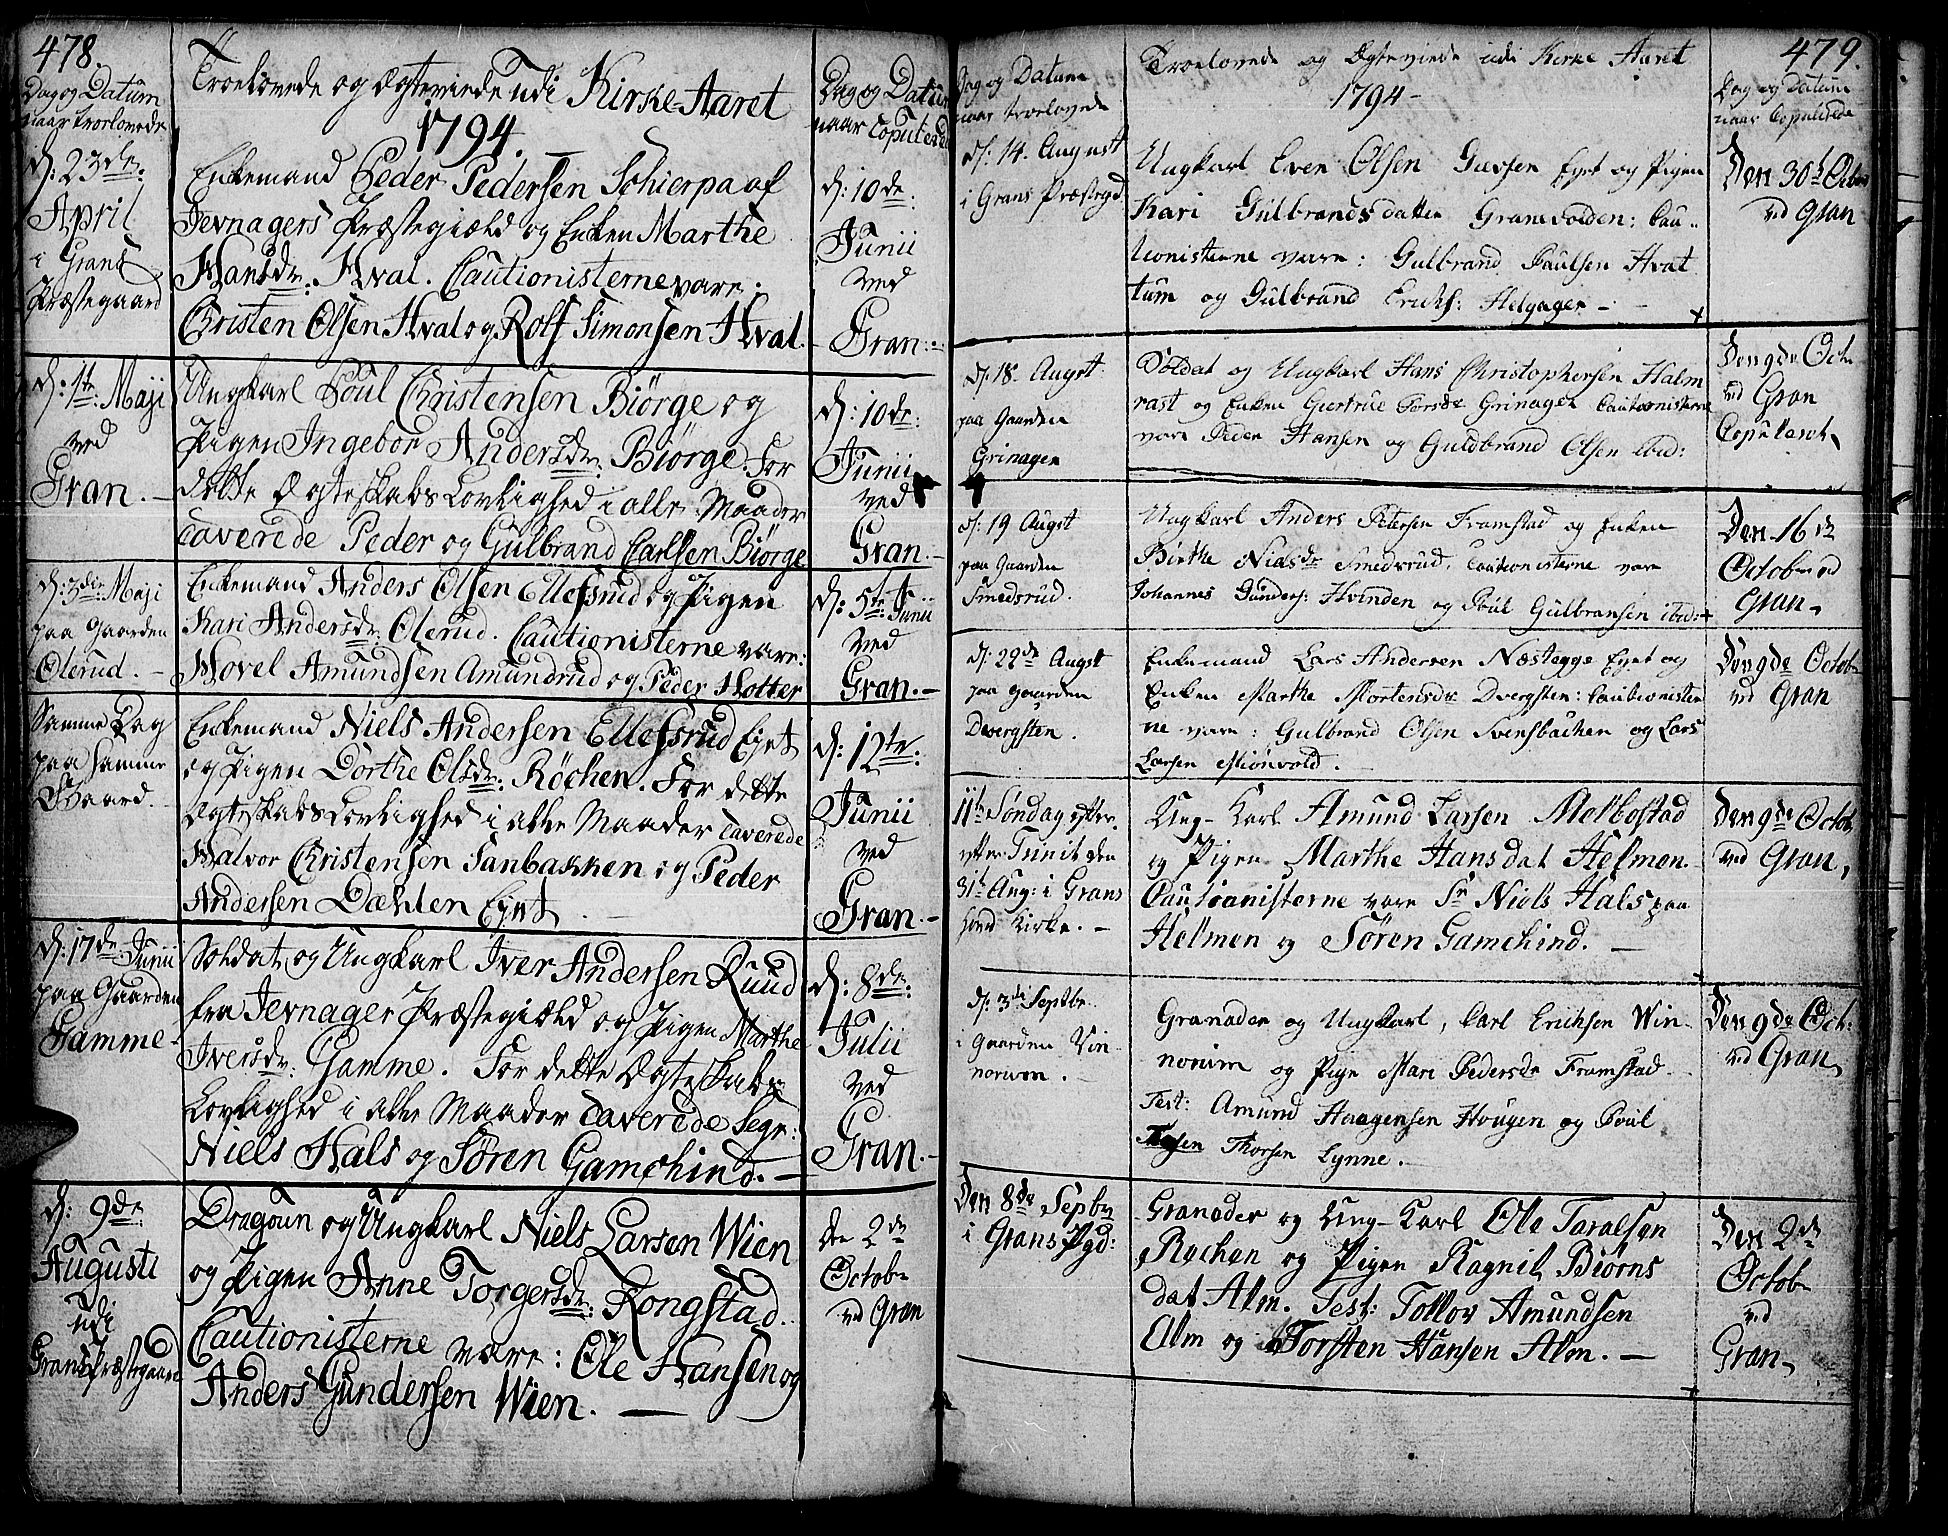 478.
Dag og Datum
naar Troelovede
Troelovede og Ægteviede udi Kirke-Aaret
1794.
Dag og Datum
naar Copulerede
d: 23de
April
i Grans
Præstegaard
Enkemand Peder Pedersen Schierpa af
Jevnagers Præstegiæld og Enken Marthe
Hansdr: Hval. Cautionisterne vare:
Christen Olsen Hval og Rolf Simonsen Hval.
d: 10de
Junii
ved
Gran.
d: 1te Maji
ved
Gran.
Ungkarl Poul Christensen Biørge og
Pigen Ingebor Andersdr: Biørge. For
dette Ægteskabs Lovlighed i alle Maader
caverede Peder og Gulbrand Carlsen Biørge
d: 10de:
Junii
ved
Gran.
d: 3die Maji
paa Gaarden
Olerud.
Enkemand Anders Olsen Ellefsrud og Pigen
Kari Andersdr: Olerud. Cautionisterne vare:
Hovel Amundsen Amundrud og Peder Hotter
d: 5te Junii
ved
Gran.
Samme Dag
paa samme
Gaard.
Enkemand Niels Andersen Ellefsrud Ejet
og Pigen Dorthe Olsdr: Røchen. For dette
Ægteskabs Lovlighed i alle Maader caverede
Halvor Christensen Sanbakken og Peder
Andersen Dæhlen Ejet.
d: 12te
Junii
ved
Gran.
d: 17de Junii
paa Gaarden
Gamme
Soldat og Ungkarl Iver Andersen Ruud
fra Jevnager Præstegiæld og Pigen Marthe
Iversdr: Gamme. For dette Ægteskabs
Lovlighed i alle Maader caverede Segr:
Niels Hals og Søren Gamchind.
d: 8de:
Julii
ved
Gran.
d: 9de
Augusti
udi
Grans Præstegaard
Dragoun og Ungkarl Niels Larsen Wien
og Pigen Anne Torgersdr: Rongstad.
Cautionisterne vare: Ole Hansen og
Anders Gundersen Wien.
den 2de
Octobr
ved Gran
479.
Dag og Datum
naar troelovede
Troelovede og Ægteviede udi Kirke Aaret
1794
Dag og Datum
naar Copulerede
d: 14. August
i Grans Præstegd
Ungkarl Even Olsen Ejet og Pigen
Kari Gulbrandsdatter Granevolden: Cau-
tionisterne vare: Gulbrand Paulsen Hvat
tum og Gulbrand Erichs: Helgager
Den 30te Octob
ved Gran
d: 18. Augst
paa Gaarden
Grinager
Soldat og Ungkarl Hans Christophersen Halm
rast og Enken Giertrue Grinager Cautionisterne
vare Peder Hansen og Guldbrand Olsen ibid:
Den 9de Octr
ved Gran
Copuleret
d: 19 Augst
paa Gaarden
Smedsrud.
Ungkarl Anders Petersen Framstad og Enken
Birthe Nielsdr Smedsrud. Cautionisterne vare
Johannes Gunders: Hvinden og Poul Gulbransen ibid:
Den 16de
October ved
Gran
d: 22de Augst
paa gaarden
Dvergsten.
Enkemand Lars Andersen Næstegge Ejet og
Enken Marthe Mortensdr Dvergsten: Cautionister
ne vare: Gulbrand Olsen Svensbachen og Lars
Larsen Miønvold.
Den 9de Octobr
ved Gran
11te Søndag efter
Trinit. den
31te Aug: i Grans
hoved Kirke.
Ung-Karl Amund Larsen Molbostad
og Pigen Marthe Hansdat Helmen.
Cautionisterne vare Sr Niels Hals paa
Helmen og Søren Gamchind.
Den 9de Octob
ved Gran
d: 3de Septbr.
i Gaarden Vin-
norum.
Granader og Ungkarl, Carl Erichsen Win-
norum og Pige Mari Pedersdr Framstad.
Test: Amund Haagensen Hougen og Poul
Thorsen Lynne.
Den 9de Oct:
ved Gran
Den 8de Septbr
i Grans Pgd:
Granader og Ung-Karl Ole Taralsen
Rochen og Pigen Ragnil Biørns
dat Alm. Test: Tollov Amundsen
Alm og Torsten Hansen Alm.
Den 2de
Octobr
ved
Gran